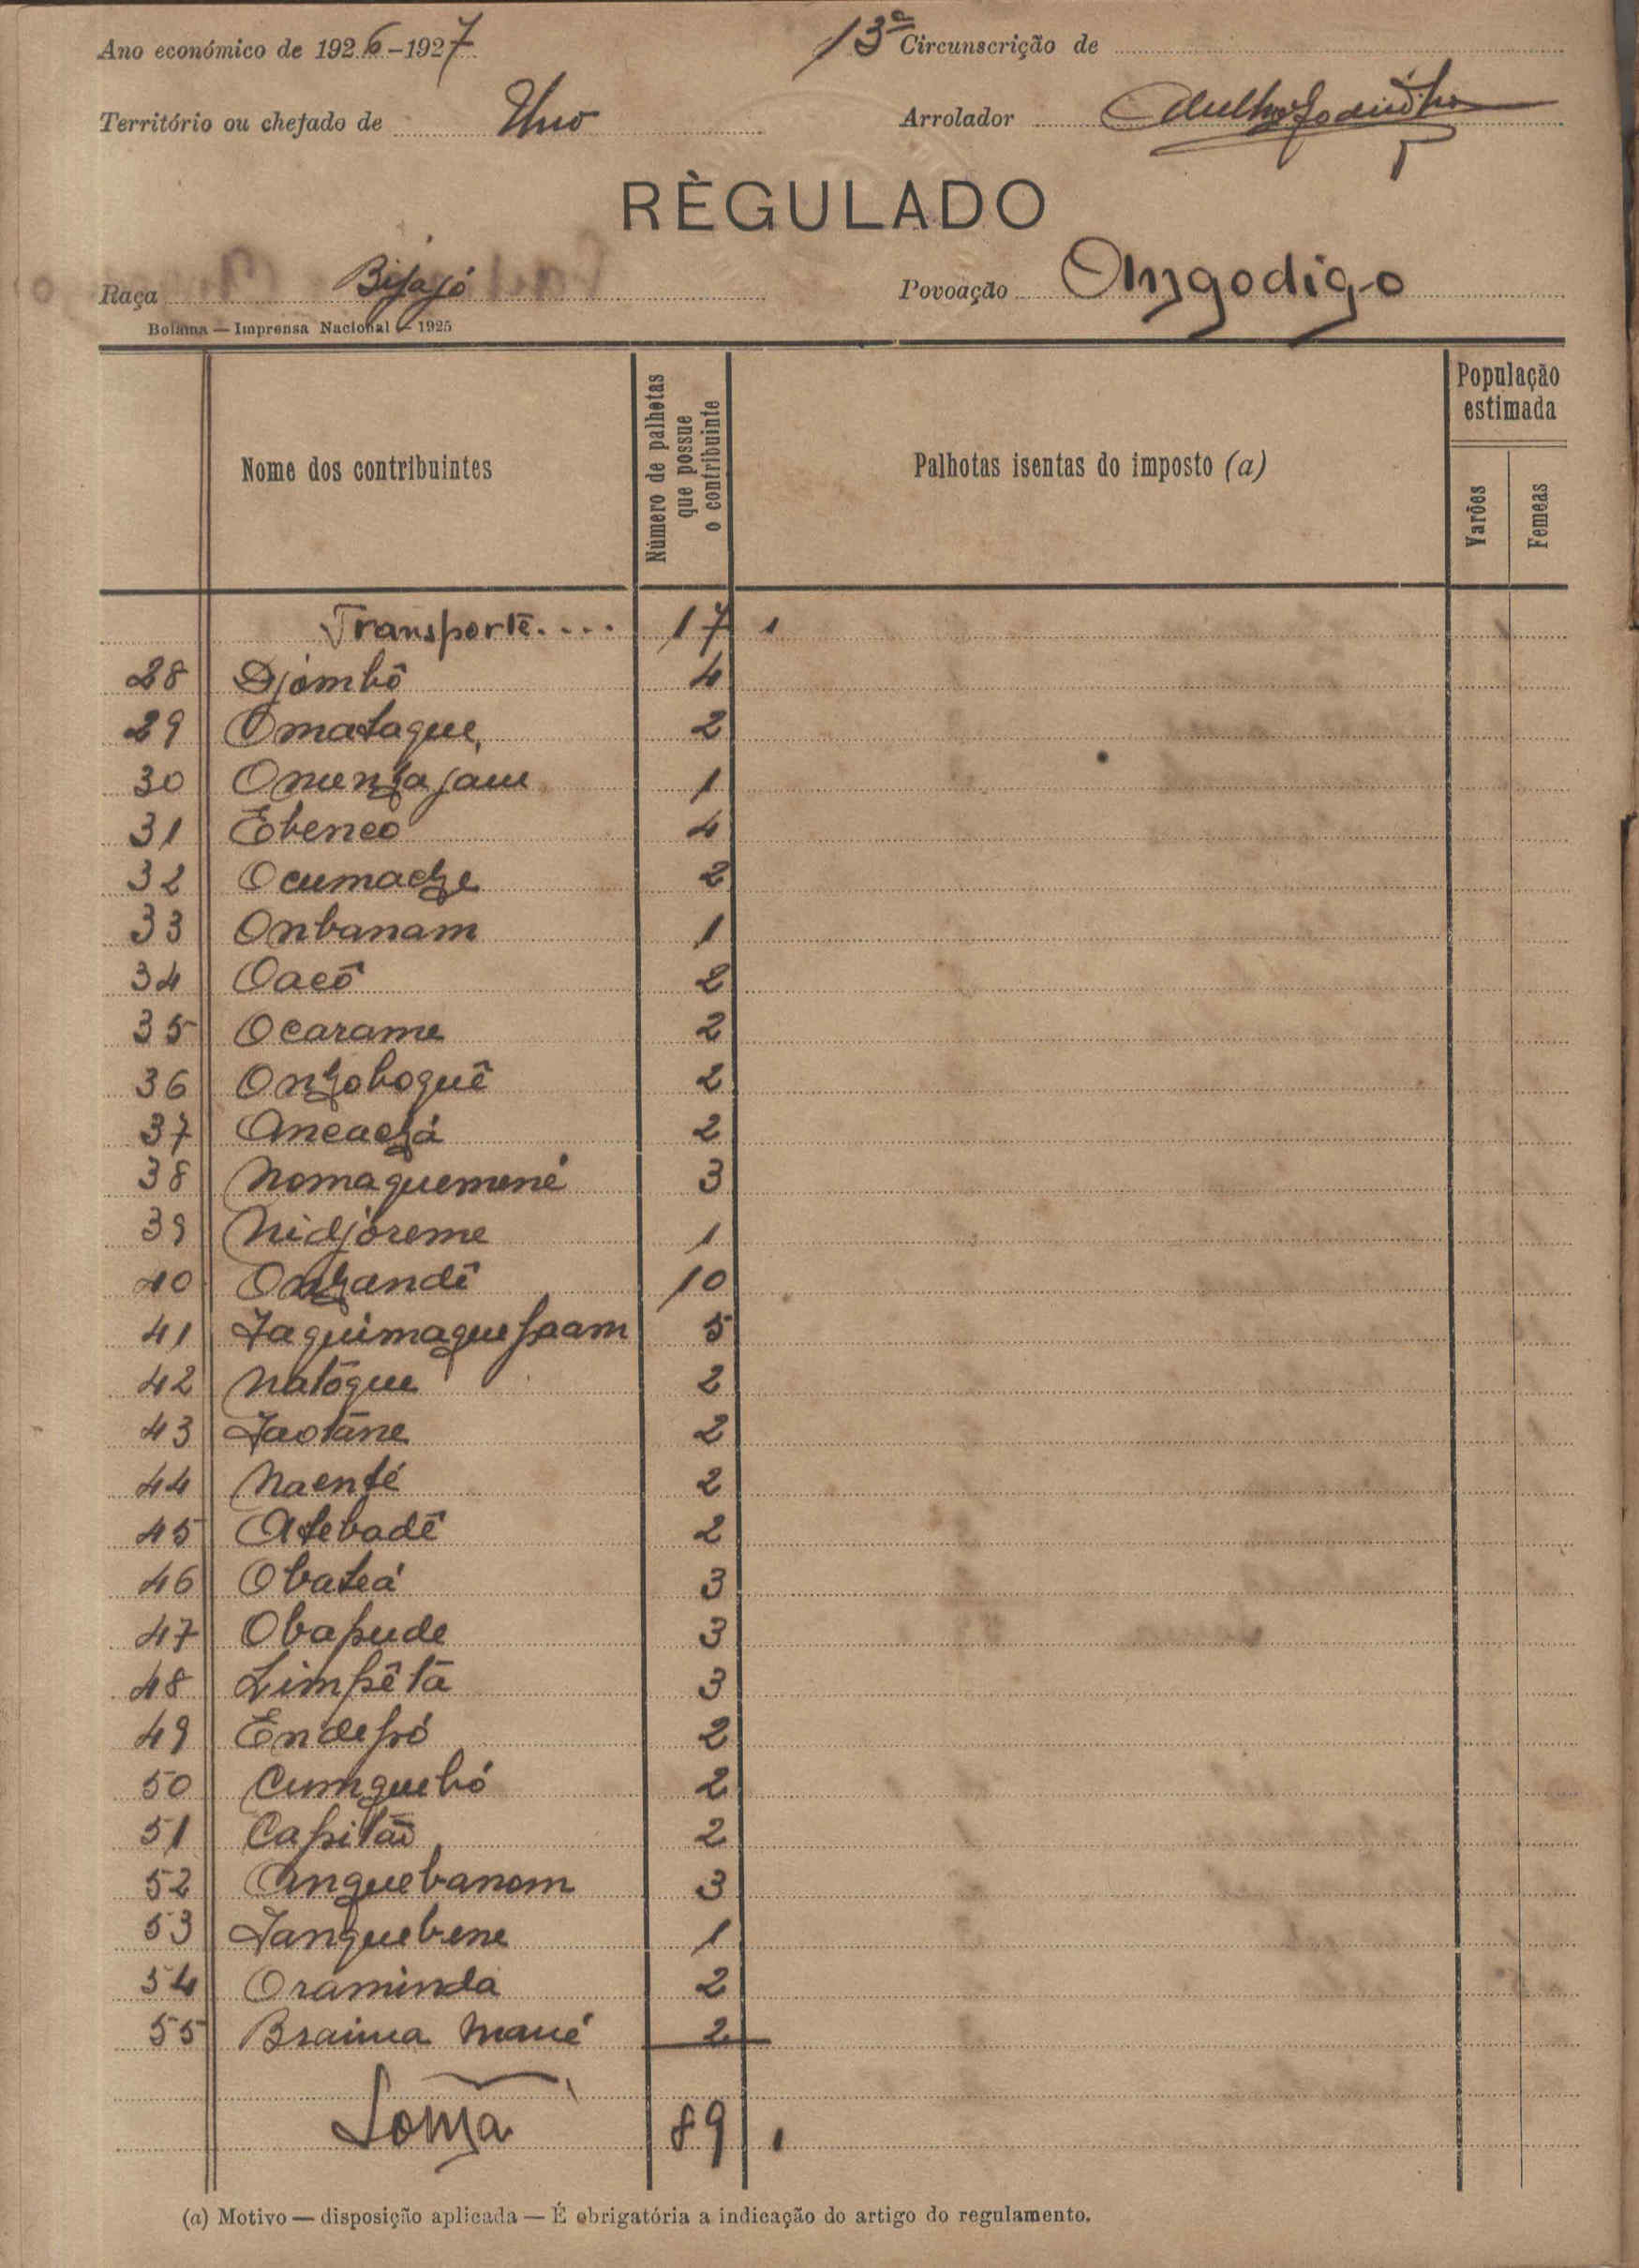 Ano económico de 1926-1927 13ª Circunscrição de
Território ou chefado de Uno Arrolador
RÈGULADO
Raça Bijajó Povoação Ongodigo
Bolama — Imprensa Nacional — 1925
Nome dos contribuintes
Número de palhotas que possue o contribuinte
Palhotas isentas do imposto (a)
População estimada
Varões
Femeas
Transporte.... 17
28 Djombô 4
29 Omataque 2
30 1
31 Ebeneó 4
32 2
33 Onbanam 1
34 Oacô 2
35 Ocarame 2
36 Onhoboquê 2
37 2
38 Nomaquemené 3
39 Nidjoreme 1
40 Onhandê 10
41 Jaquimaquepaam 5
42 Natoque 2
43 Jaotane 2
44 Naenté 2
45 Atebadê 2
46 Obateá 3
47 Obapude 3
48 Limpêta 3
49 Endepó 2
50 Cumguebó 2
51 Capitão 2
52 Anguebanom 3
53 Janquebene 1
54 Oraminda 2
55 Braima Mané 2
Soma 89
(a) Motivo — disposição aplicada — É obrigatória a indicação do artigo do regulamento.